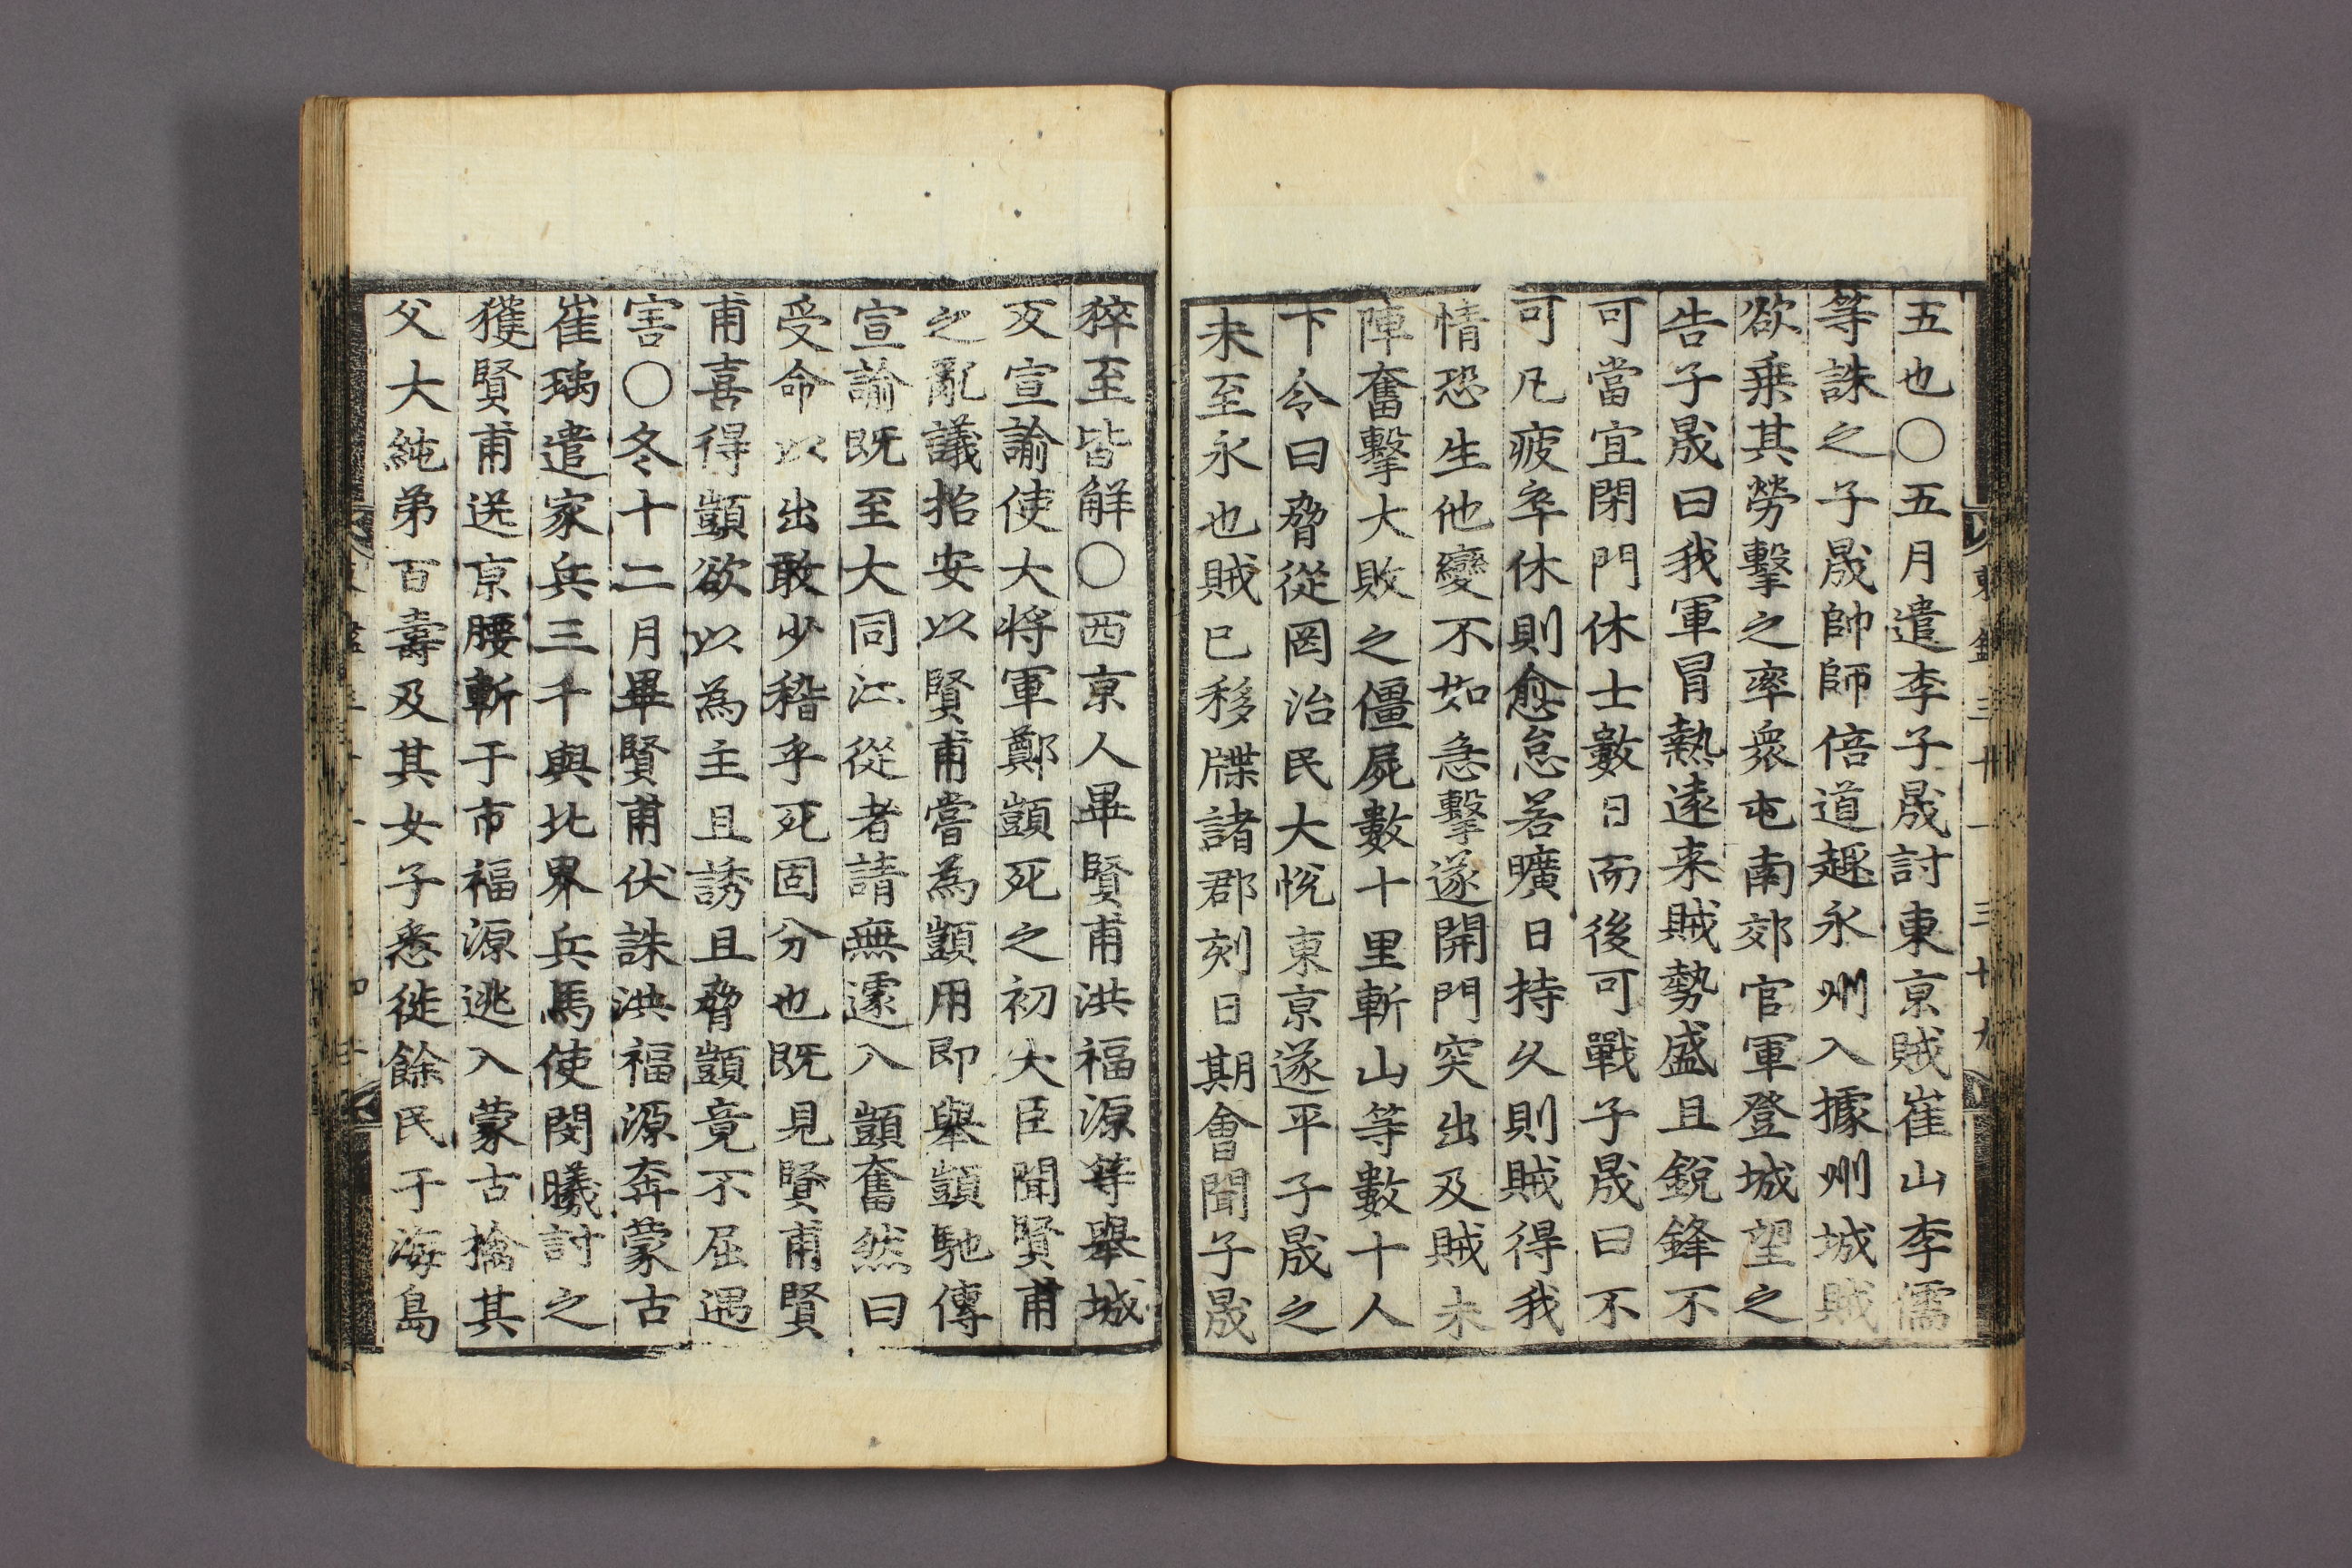 五也〇五月遣李子晟討東京賊崔山李儒
等誅之子晟帥師倍道趣永州入據州城賊
欲乗其勞擊之率衆屯南郊官軍登城望之
告子晟曰我軍冒熱遠来賊勢盛且銳鋒不
可當宜閉門休士數日而後可戰子晟曰不
可凡疲卒休則愈怠若曠日持久則賊得我
情恐生他變不如急擊遂開門突出及賊未
陣奮擊大敗之僵屍數十里斬山等數十人
下令曰脅從罔治民大悅東京遂平子晟之
未至永也賊已移牒諸郡刻日期會聞子晟
猝至皆解〇西京人畢賢甫洪福源等舉城
叛宣諭使大將軍鄭顗死之初大臣聞賢甫
之亂議招安以賢甫嘗為顗用即舉顗馳傳
宣諭既至大同江從者請無遽入顗奮然曰
受命以出敢少稽乎死固分也既見賢甫賢
甫喜得顗欲以為主且誘且脅顗竟不屈遇
害〇冬十二月畢賢甫伏誅洪福源奔蒙古
崔瑀遣家兵三千與北界兵馬使閔曦討之
獲賢甫送京腰斬于市福源逃入蒙古擒其
父大純弟百壽及其女子悉徙餘民于海島